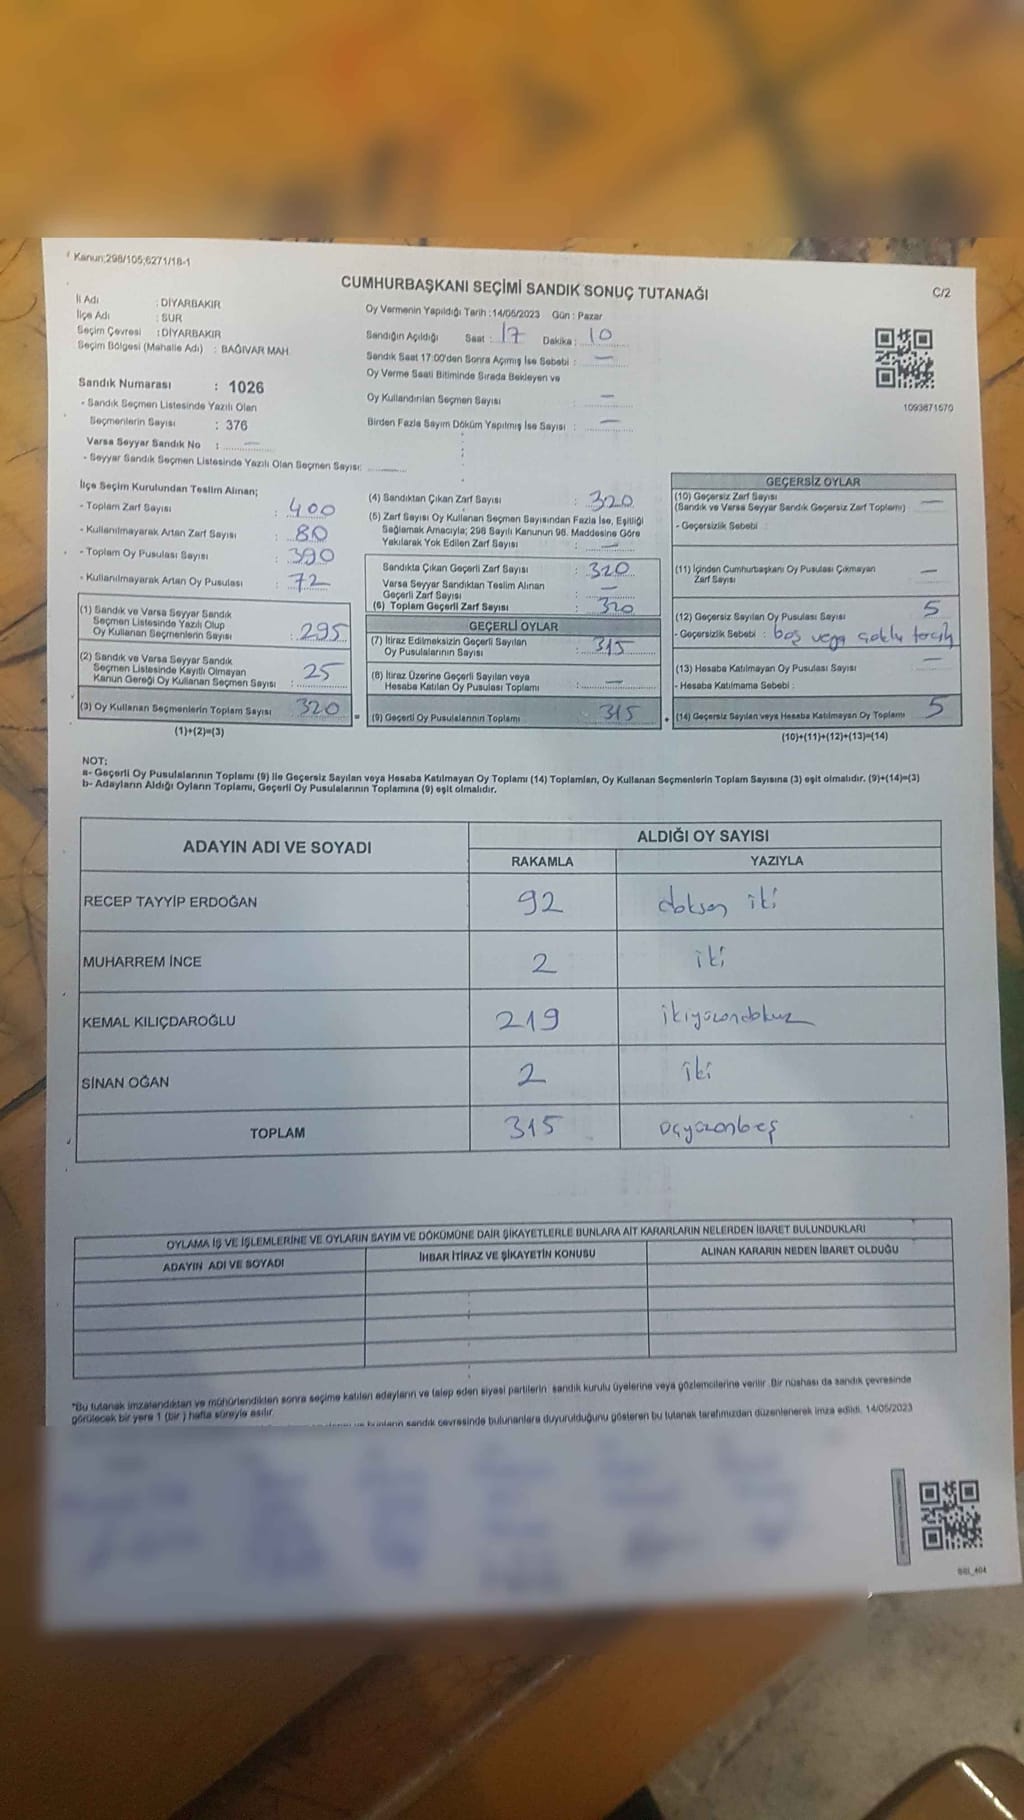 Kanun;298/105;6271/18-1
CUMHURBAŞKANI SEÇİMİ SANDIK SONUÇ TUTANAĞI
C/2
İl Adı : DİYARBAKIR
İlçe Adı : SUR
Seçim Çevresi : DİYARBAKIR
Seçim Bölgesi (Mahalle Adı) : BAĞIVAR MAH.
Oy Vermenin Yapıldığı Tarih :14/05/2023 Gün : Pazar
Sandığın Açıldığı Saat : 17 Dakika : 10
Sandık Saat 17:00'den Sonra Açılmış İse Sebebi : —
Oy Verme Saati Bitiminde Sırada Bekleyen ve
Oy Kullandırılan Seçmen Sayısı : —
Birden Fazla Sayım Döküm Yapılmış İse Sayısı : —
1093871570
Sandık Numarası : 1026
- Sandık Seçmen Listesinde Yazılı Olan
Seçmenlerin Sayısı : 376
Varsa Seyyar Sandık No : —
- Seyyar Sandık Seçmen Listesinde Yazılı Olan Seçmen Sayısı:
İlçe Seçim Kurulundan Teslim Alınan;
- Toplam Zarf Sayısı : 400
- Kullanılmayarak Artan Zarf Sayısı : 80
- Toplam Oy Pusulası Sayısı : 390
- Kullanılmayarak Artan Oy Pusulası : 72
(1) Sandık ve Varsa Seyyar Sandık
Seçmen Listesinde Yazılı Olup
Oy Kullanan Seçmenlerin Sayısı : 295
(2) Sandık ve Varsa Seyyar Sandık
Seçmen Listesinde Kayıtlı Olmayan
Kanun Gereği Oy Kullanan Seçmen Sayısı : 25
(3) Oy Kullanan Seçmenlerin Toplam Sayısı 320
(1)+(2)=(3)
(4) Sandıktan Çıkan Zarf Sayısı : 320
(5) Zarf Sayısı Oy Kullanan Seçmen Sayısından Fazla İse, Eşitliği
Sağlamak Amacıyla; 298 Sayılı Kanunun 98. Maddesine Göre
Yakılarak Yok Edilen Zarf Sayısı : —
Sandıkta Çıkan Geçerli Zarf Sayısı : 320
Varsa Seyyar Sandıktan Teslim Alınan
Geçerli Zarf Sayısı : —
(6) Toplam Geçerli Zarf Sayısı : 320
GEÇERLİ OYLAR
(7) İtiraz Edilmeksizin Geçerli Sayılan
Oy Pusulalarının Sayısı : 315
(8) İtiraz Üzerine Geçerli Sayılan veya
Hesaba Katılan Oy Pusulası Toplamı : —
= (9) Geçerli Oy Pusulalarının Toplamı 315
GEÇERSİZ OYLAR
(10) Geçersiz Zarf Sayısı
(Sandık ve Varsa Seyyar Sandık Geçersiz Zarf Toplamı) —
- Geçersizlik Sebebi :
(11) İçinden Cumhurbaşkanı Oy Pusulası Çıkmayan
Zarf Sayısı —
(12) Geçersiz Sayılan Oy Pusulası Sayısı 5
- Geçersizlik Sebebi : boş veya çoklu tercih
(13) Hesaba Katılmayan Oy Pusulası Sayısı —
- Hesaba Katılmama Sebebi :
+ (14) Geçersiz Sayılan veya Hesaba Katılmayan Oy Toplamı 5
(10)+(11)+(12)+(13)=(14)
NOT:
a- Geçerli Oy Pusulalarının Toplamı (9) ile Geçersiz Sayılan veya Hesaba Katılmayan Oy Toplamı (14) Toplamları, Oy Kullanan Seçmenlerin Toplam Sayısına (3) eşit olmalıdır. (9)+(14)=(3)
b- Adayların Aldığı Oyların Toplamı, Geçerli Oy Pusulalarının Toplamına (9) eşit olmalıdır.
ADAYIN ADI VE SOYADI
ALDIĞI OY SAYISI
RAKAMLA YAZIYLA
RECEP TAYYİP ERDOĞAN 92 doksan iki
MUHARREM İNCE 2 iki
KEMAL KILIÇDAROĞLU 219 ikiyüzondokuz
SİNAN OĞAN 2 iki
TOPLAM 315 üçyüzonbeş
OYLAMA İŞ VE İŞLEMLERİNE VE OYLARIN SAYIM VE DÖKÜMÜNE DAİR ŞİKAYETLERLE BUNLARA AİT KARARLARIN NELERDEN İBARET BULUNDUKLARI
ADAYIN ADI VE SOYADI İHBAR İTİRAZ VE ŞİKAYETİN KONUSU ALINAN KARARIN NEDEN İBARET OLDUĞU
*Bu tutanak imzalandıktan ve mühürlendikten sonra seçime katılan adayların ve talep eden siyasi partilerin sandık kurulu üyelerine veya gözlemcilerine verilir. Bir nüshası da sandık çevresinde
görülecek bir yere 1 (bir) hafta süreyle asılır.
ve bunların sandık çevresinde bulunanlara duyurulduğunu gösteren bu tutanak tarafımızdan düzenlenerek imza edildi. 14/05/2023